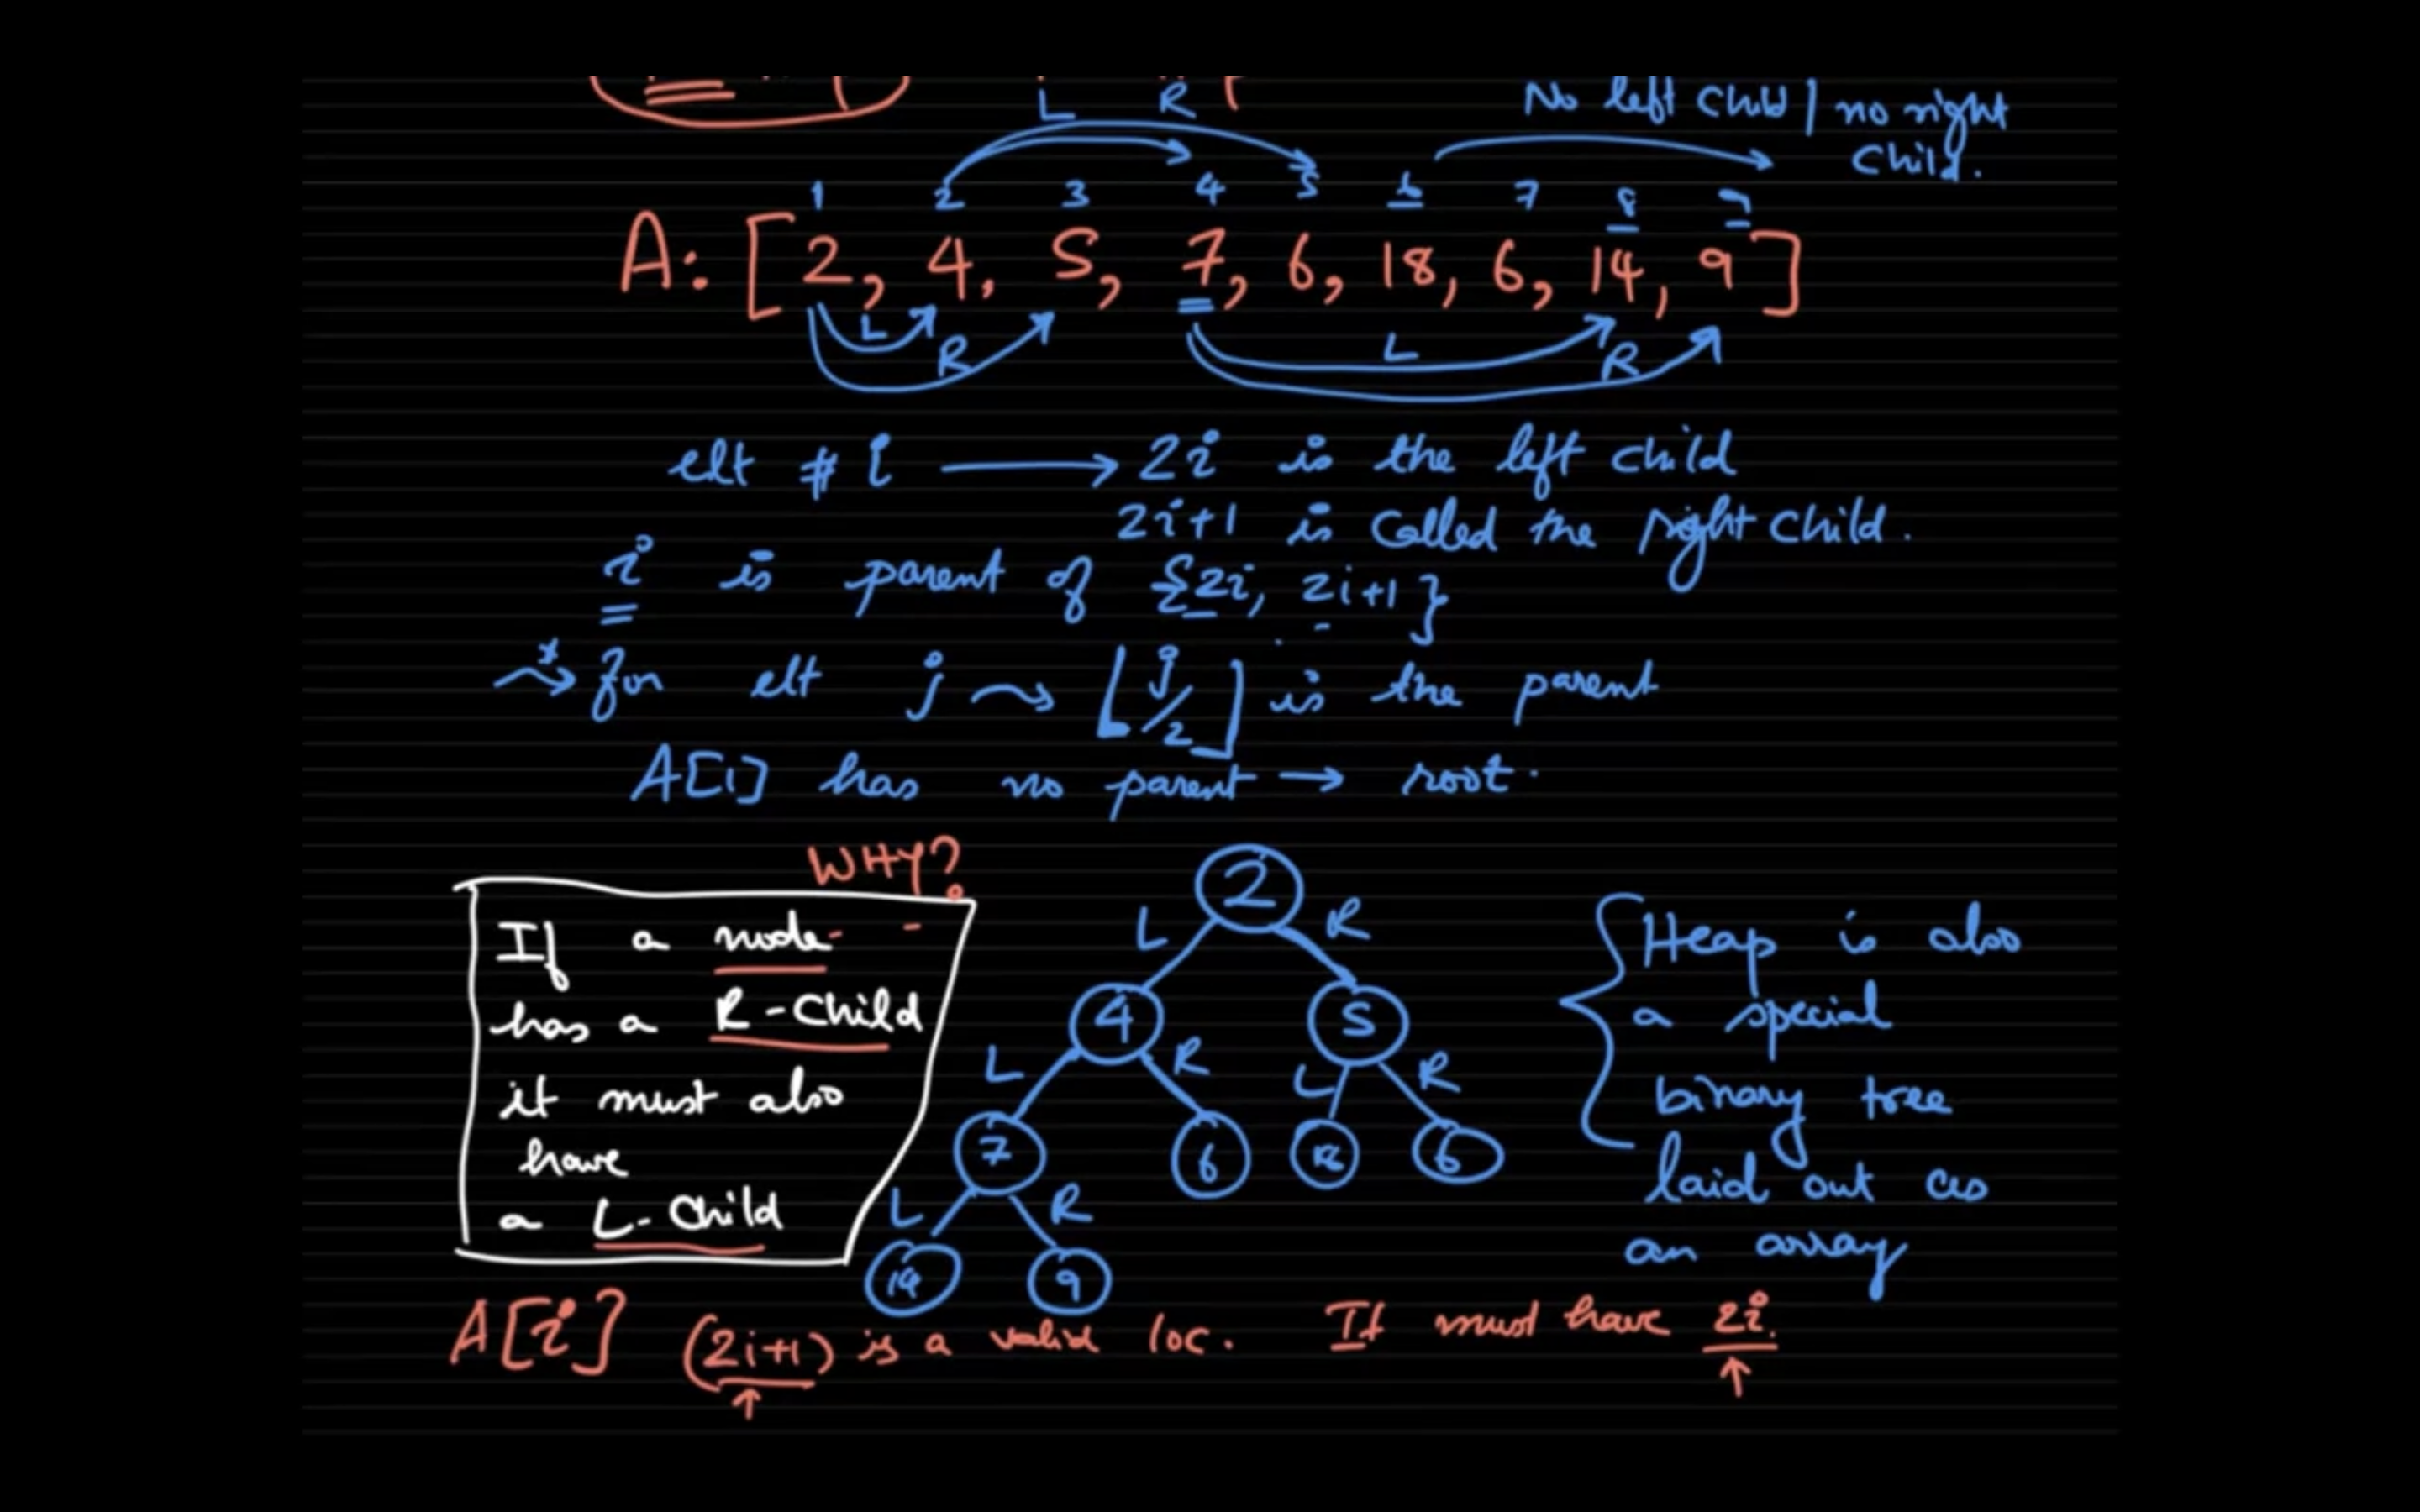 L R
No left child | no right
child.
1 2 3 4 5 6 7 8 9
A: [2, 4, 5, 7, 6, 18, 6, 14, 9]
L R L R
elt # i → 2i is the left child
2i+1 is called the right child.
i is parent of {2i, 2i+1}
* for elt j ⌊j/2⌋ is the parent
A[1] has no parent → root.
WHY?
If a node
has a R-child
it must also
have
a L-child
2
L R
4 5
L R L R
7 6 18 6
L R
14 9
Heap is also
a special
binary tree
laid out as
an array
A[i] (2i+1) is a valid loc. It must have 2i.